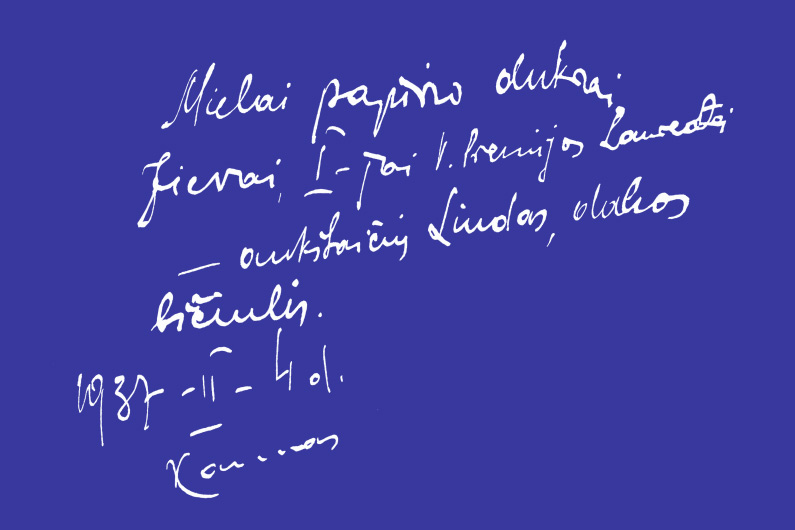 Mielai pajūrio dukrai
Jievai, I-jai V. Premijos Laureatei
— aukštaičių Liudas,
bičiulis.
1937-II-4 d.
Kaunas